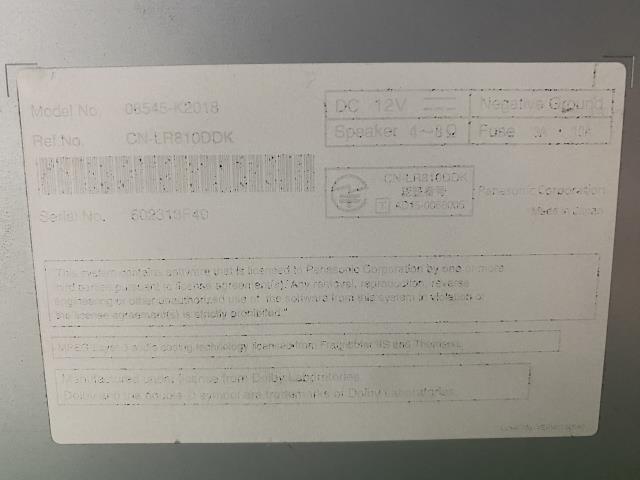 Model No. 08545-K2018
DC 12V
Negative Ground
Ref.No. CN-LR810DDK
Speaker 4～8Ω
Fuse 3A 10A
CN-LR810DDK
認証番号
Panasonic Corporation
Serial No.
Made in Japan
"This system contains software that is licensed to Panasonic Corporation by one or more
third parties pursuant to license agreement(s). Any removal, reproduction, reverse
engineering or other unauthorized use of the software from this system in violation of
the license agreement(s) is strictly prohibited."
MPEG Layer-3 audio coding technology licensed from Fraunhofer IIS and Thomson.
Manufactured under license from Dolby Laboratories.
Dolby and the double-D symbol are trademarks of Dolby Laboratories.